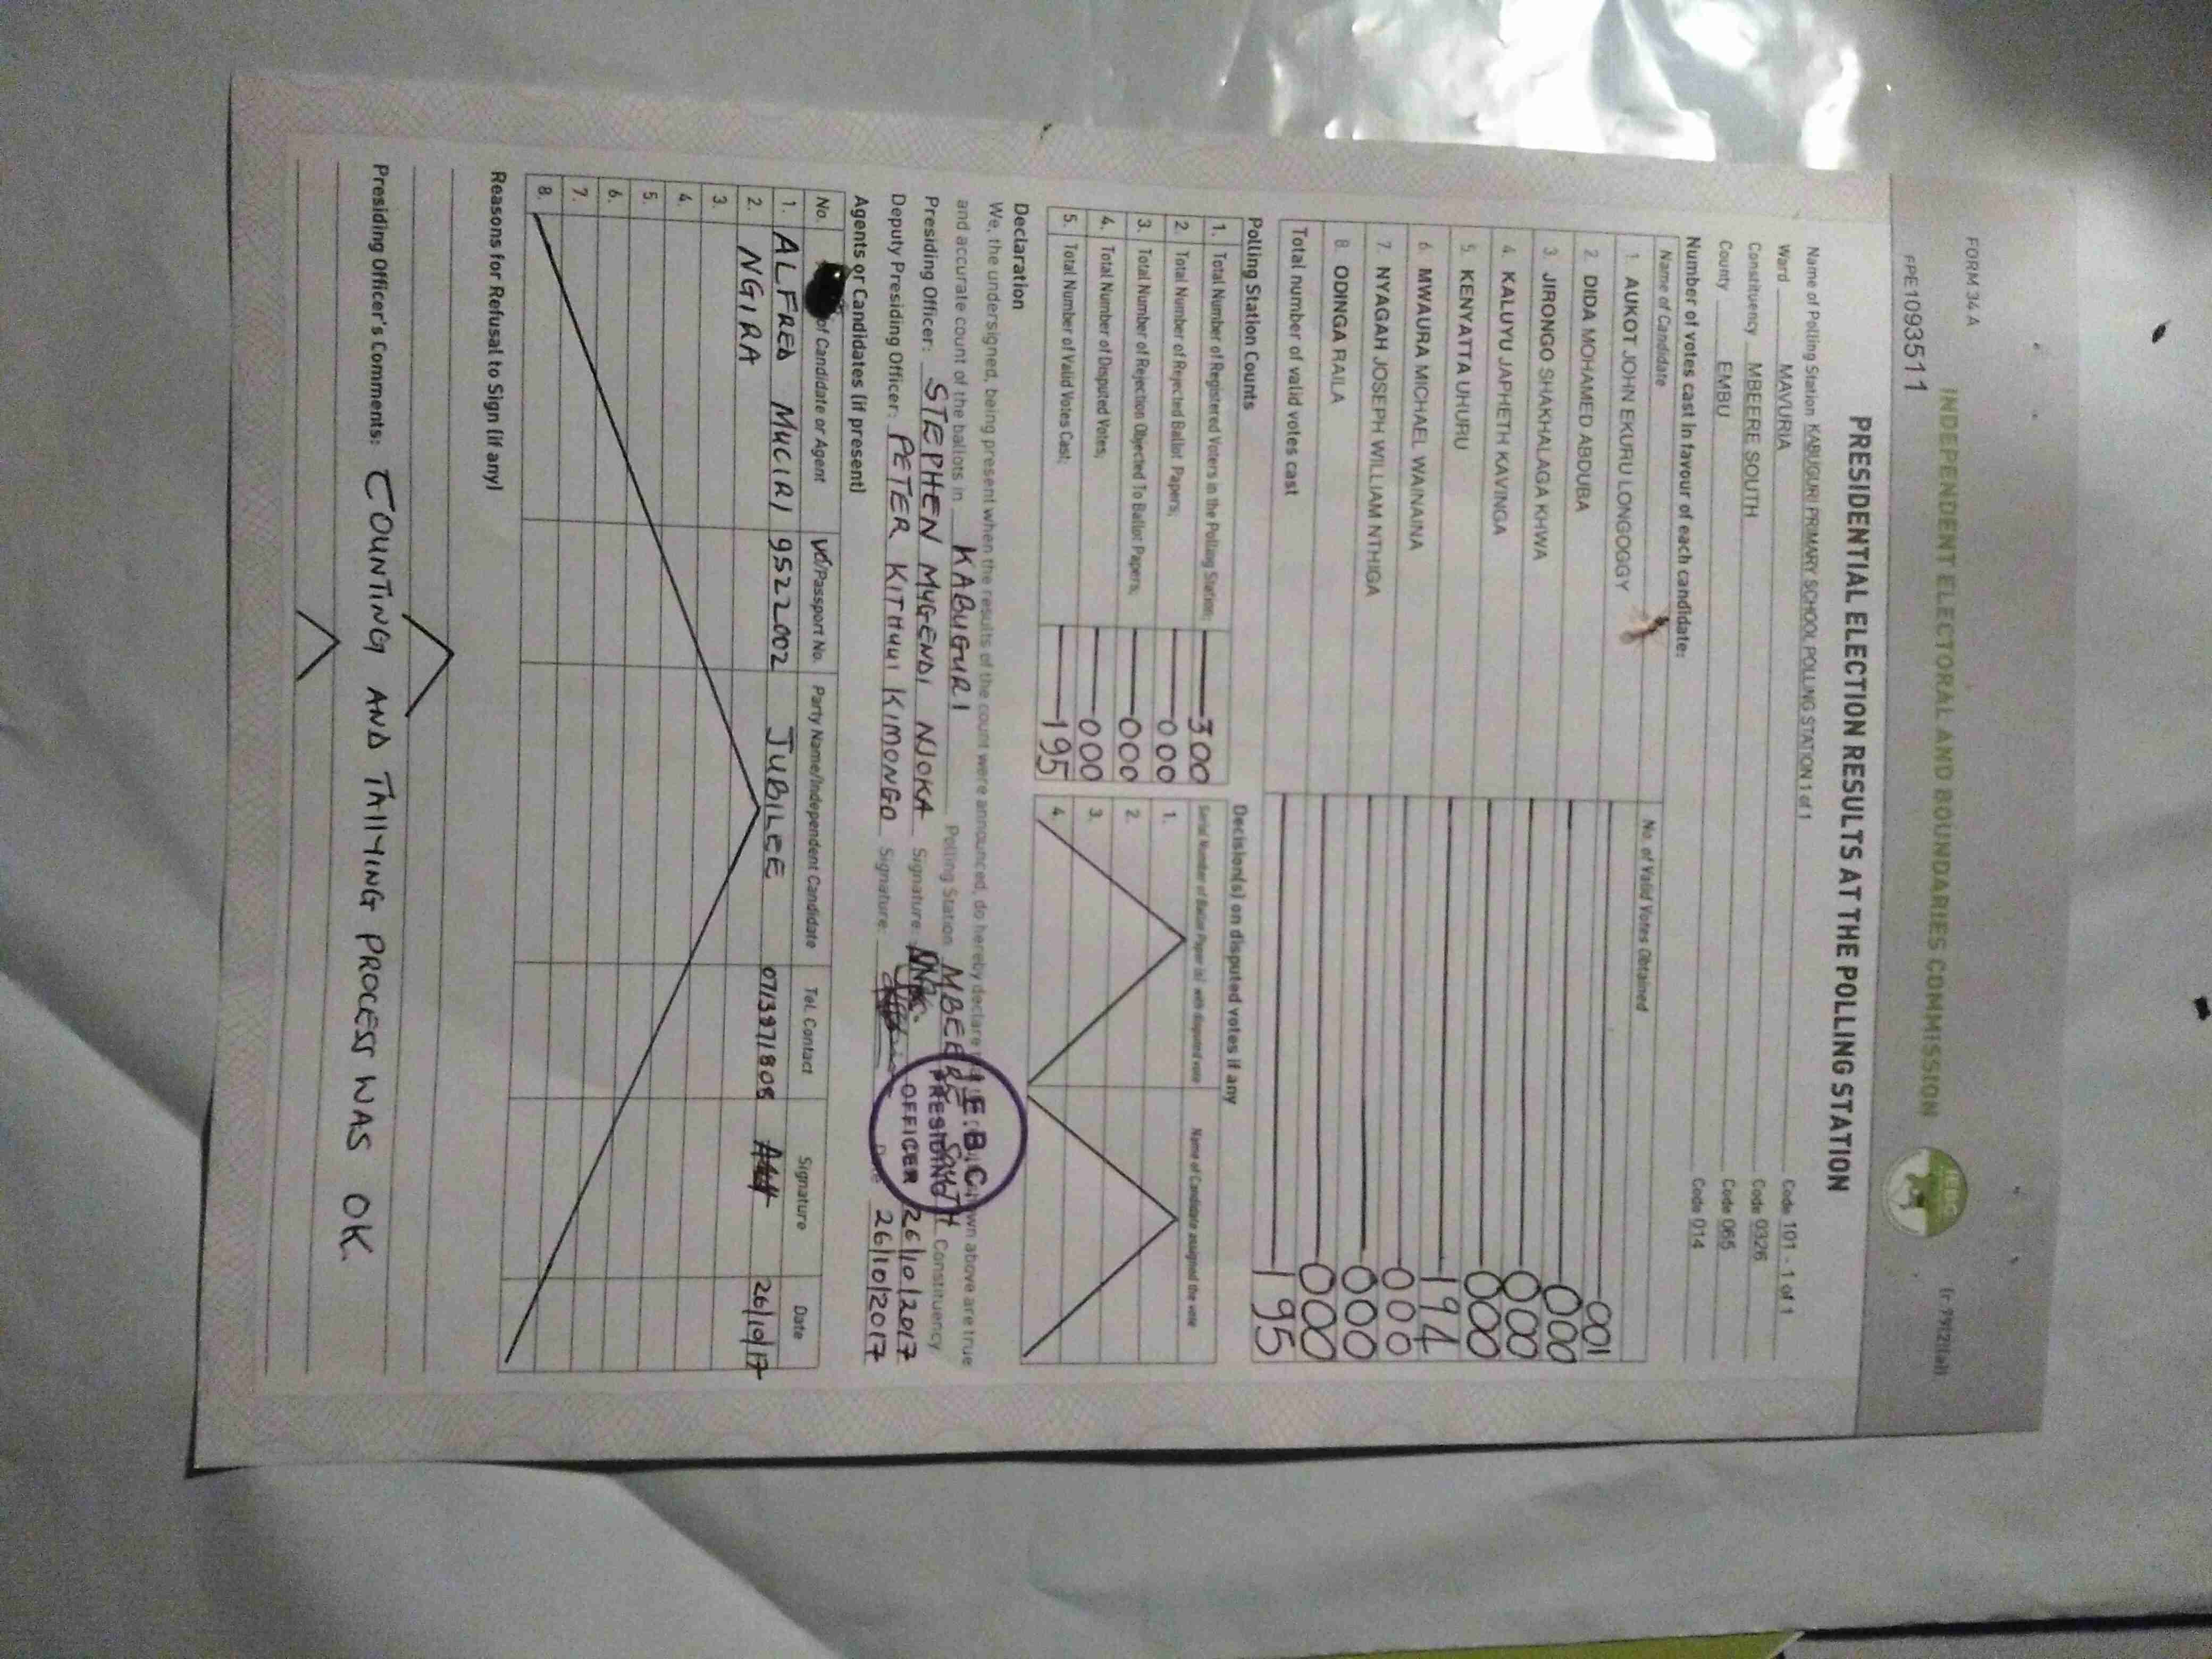 FORM 34 A
(r 79(2)(a))
INDEPENDENT ELECTORAL AND BOUNDARIES COMMISSION
IEBC
PE1093511
PRESIDENTIAL ELECTION RESULTS AT THE POLLING STATION
Name of Polling Station KABUGURI PRIMARY SCHOOL POLLING STATION 1 of 1 Code 101 - 1 of 1
Ward MAVURIA Code 0326
Constituency MBEERE SOUTH Code 065
County EMBU Code 014
Number of votes cast in favour of each candidate:
Name of Candidate No. of Valid Votes Obtained
1. AUKOT JOHN EKURU LONGOGGY 001
2. DIDA MOHAMED ABDUBA 000
3. JIRONGO SHAKHALAGA KHWA 000
4. KALUYU JAPHETH KAVINGA 000
5. KENYATTA UHURU 194
6. MWAURA MICHAEL WAINAINA 000
7. NYAGAH JOSEPH WILLIAM NTHIGA 000
8. ODINGA RAILA 000
Total number of valid votes cast 195
Polling Station Counts
1. Total Number of Registered Voters in the Polling Station; 300
2. Total Number of Rejected Ballot Papers; 000
3. Total Number of Rejection Objected To Ballot Papers; 000
4. Total Number of Disputed Votes; 000
5. Total Number of Valid Votes Cast; 195
Decision(s) on disputed votes if any
Serial Number of Ballot Paper (s) with disputed vote Name of Candidate assigned the vote
1.
2.
3.
4.
Declaration
We, the undersigned, being present when the results of the count were announced, do hereby declare shown above are true
and accurate count of the ballots in KABUGURI Polling Station MBEERE SOUTH Constituency
Presiding Officer: STEPHEN MUGENDI NJOKA Signature: 26/10/2017
Deputy Presiding Officer: PETER KITHUI KIMONGO Signature: Date 26/10/2017
I.E.B.C
PRESIDING
OFFICER
Agents or Candidates (if present)
No. of Candidate or Agent ID/Passport No. Party Name/Independent Candidate Tel. Contact Signature Date
1. ALFRED MUCIRI 9522002 JUBILEE 0713971808 26/10/17
2. NGIRA
3.
4.
5.
6.
7.
8.
Reasons for Refusal to Sign (if any)
Presiding Officer's Comments: COUNTING AND TALLYING PROCESS WAS OK.